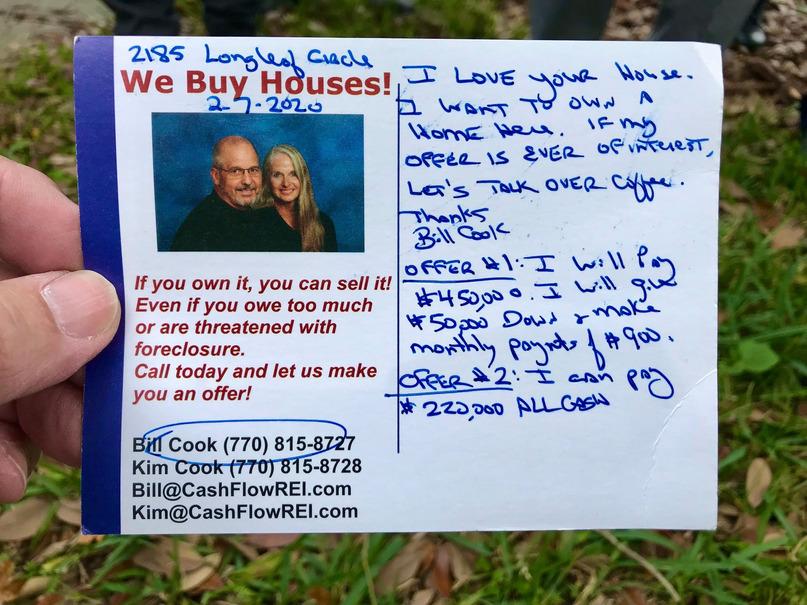 2185 Longleaf Circle
We Buy Houses!
2-7-2020
If you own it, you can sell it!
Even if you owe too much
or are threatened with
foreclosure.
Call today and let us make
you an offer!
Bill Cook (770) 815-8727
Kim Cook (770) 815-8728
Bill@CashFlowREI.com
Kim@CashFlowREI.com
I LOVE your House.
I WANT TO OWN A
HOME HERE. IF my
OFFER IS EVER OF INTEREST,
LET'S TALK OVER Coffee.
Thanks
Bill Cook
OFFER #1: I will Pay
$450,000. I will give
$50,000 Down & make
monthly payments of $900.
OFFER #2: I can pay
$220,000 ALL CASH